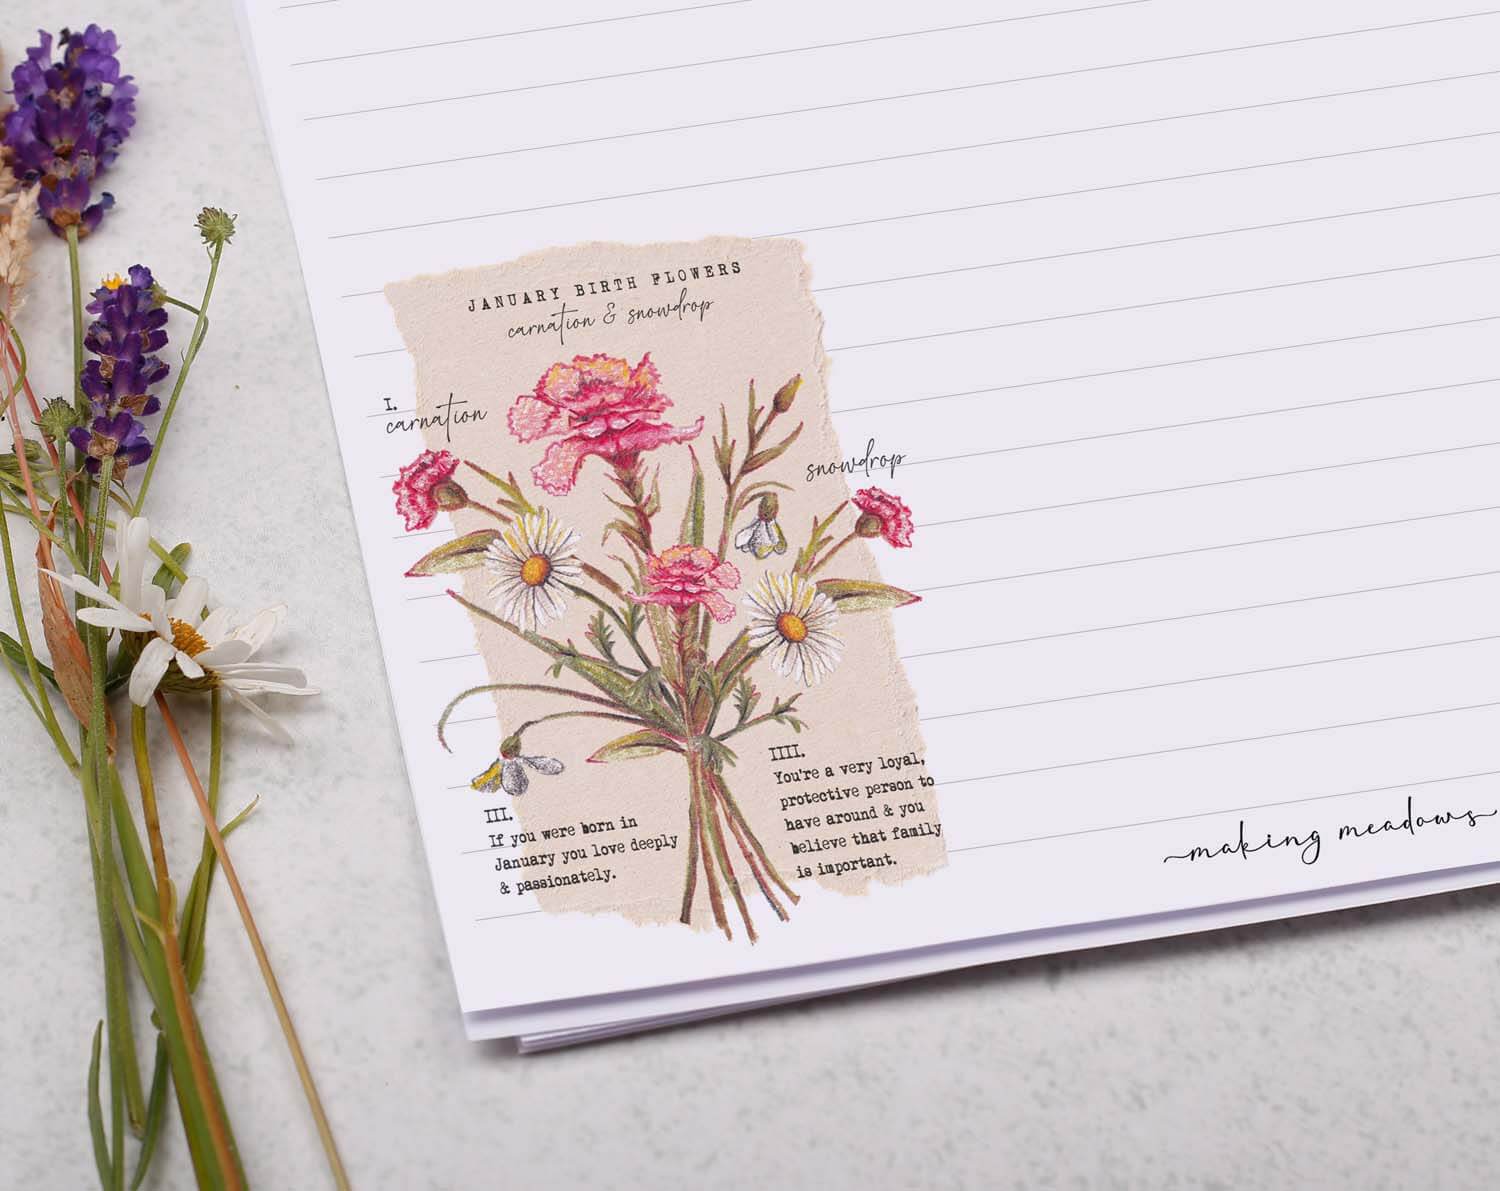 JANUARY BIRTH FLOWERS
carnation & snowdrop
I.
carnation
snowdrop
III.
If you were born in
January you love deeply
& passionately.
IIII.
You're a very loyal,
protective person to
have around & you
believe that family
is important.
making meadows